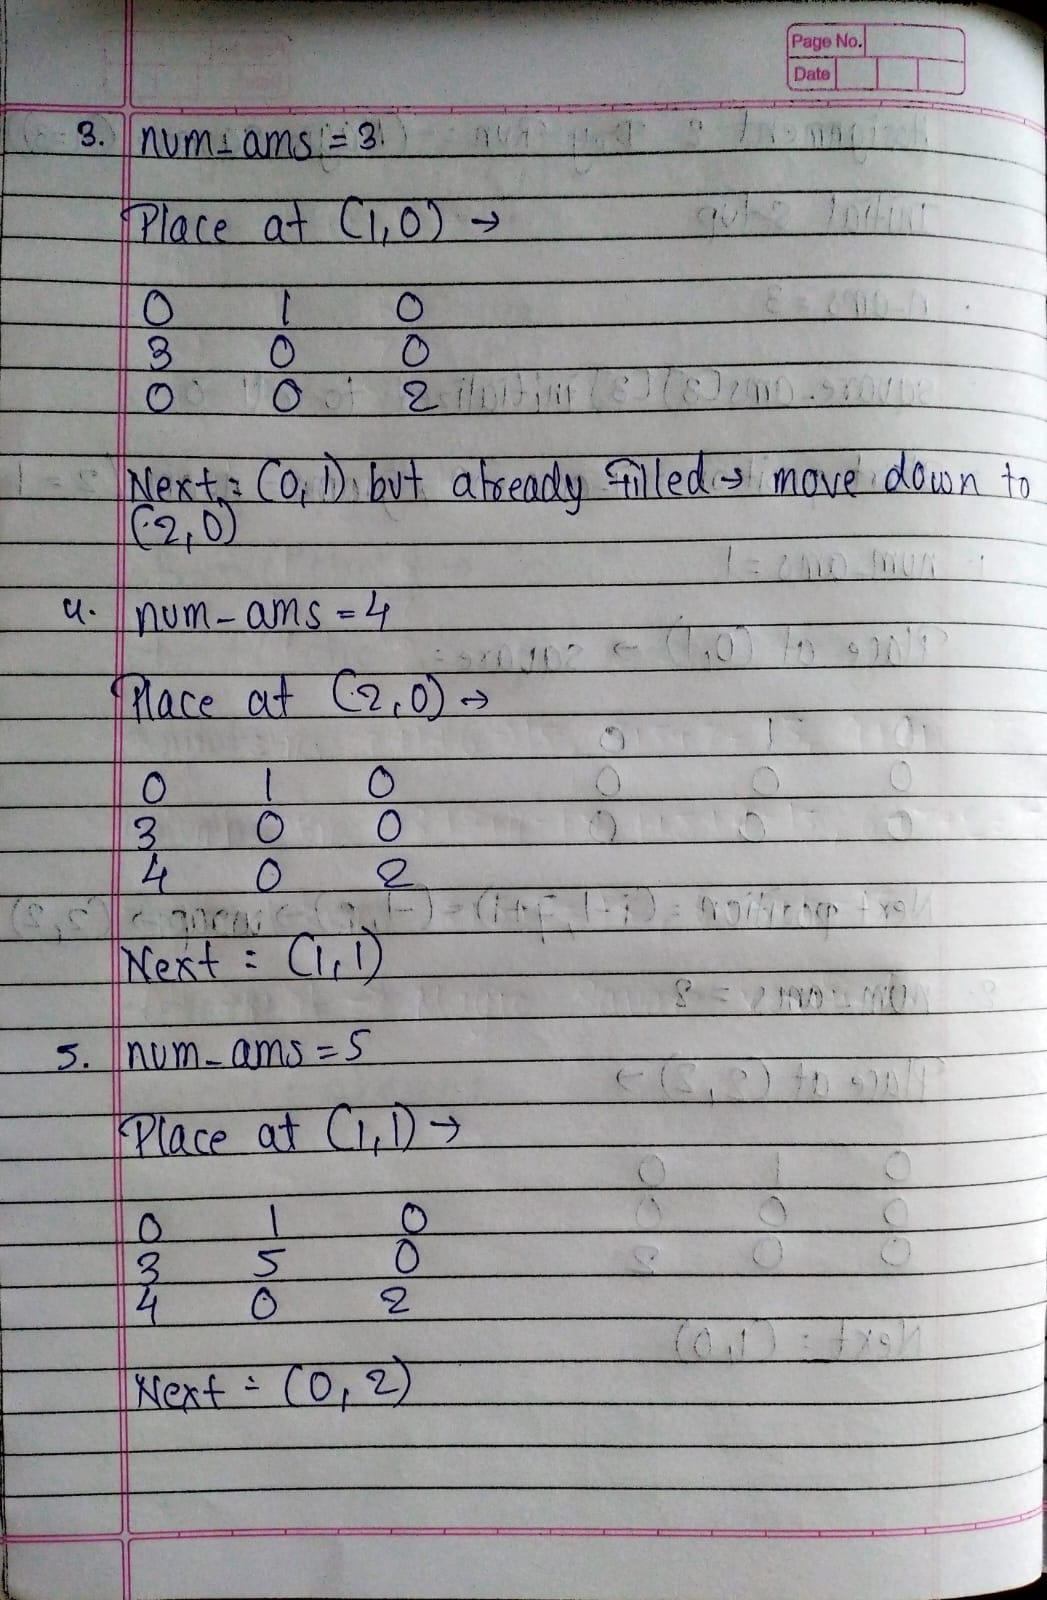 Page No.
Date
3. num-ams = 3
Place at (1,0) →
0 1 0
3 0 0
0 0 2
Next = (0,1) but already filled → move down to
(2,0)
4. num-ams = 4
Place at (2,0) →
0 1 0
3 0 0
4 0 2
Next = (1,1)
5. num-ams = 5
Place at (1,1) →
0 1 0
3 5 0
4 0 2
Next = (0,2)